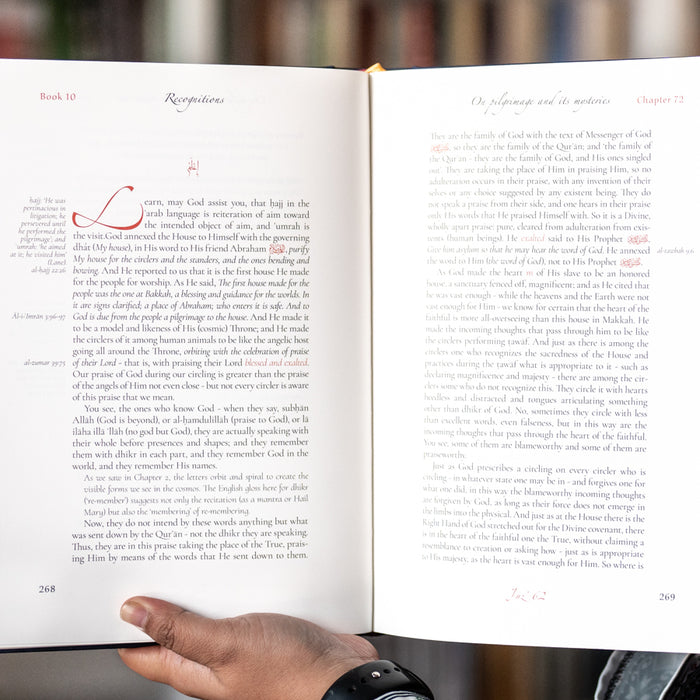 Book 10
Recognitions
Learn, may God assist you, that ḥajj in the
'arab language is reiteration of aim toward
the intended object of aim, and 'umrah is
the visit. God annexed the House to Himself with the governing
dhāt (My house), in His word to His friend Abraham, purify
My house for the circlers and the standers, and the ones bending and
bowing. And He reported to us that it is the first house He made
for the people for worship. As He said, The first house made for the
people was the one at Bakkah, a blessing and guidance for the worlds. In
it are signs clarified; a place of Abraham; who enters it is safe. And to
God is due from the people a pilgrimage to the house. And He made it
to be a model and likeness of His (cosmic) Throne; and He made
the circlers of it among human animals to be like the angelic host
going all around the Throne, orbiting with the celebration of praise
of their Lord - that is, with praising their Lord blessed and exalted.
Our praise of God during our circling is greater than the praise
of the angels of Him not even close - but not every circler is aware
of this praise that we mean.
You see, the ones who know God - when they say, subḥān
Allāh (God is beyond), or al-ḥamdulillāh (praise to God), or lā
ilāha illā 'llāh (no god but God), they are actually speaking with
their whole before presences and shapes; and they remember
them with dhikr in each part, and they remember God in the
world, and they remember His names.
As we saw in Chapter 2, the letters orbit and spiral to create the
visible forms we see in the cosmos. The English gloss here for dhikr
('re-member') suggests not only the recitation (as a mantra or Hail
Mary) but also the 'membering' of re-membering.
Now, they do not intend by these words anything but what
was sent down by the Qur'ān - not the dhikr they are speaking.
Thus, they are in this praise taking the place of the True, prais-
ing Him by means of the words that He sent down to them.
ḥajj: 'He was
pertinacious in
litigation; he
persevered until
he performed the
pilgrimage'; and
umrah: 'he aimed
at it; he visited him'
(Lane).
al-ḥajj 22:26
Āl-i 'Imrān 3:96-97
al-zumar 39:75
268
On pilgrimage and its mysteries
Chapter 72
They are the family of God with the text of Messenger of God
, so they are the family of the Qur'ān; and 'the family of
the Qur'ān - they are the family of God, and His ones singled
out'. They are taking the place of Him in praising Him, so no
adulteration occurs in their praise, with any invention of their
selves or any choice suggested by any existent being. They do
not speak a praise from their side, and one hears in their praise
only His words that He praised Himself with. So it is a Divine,
wholly apart praise, pure, cleared from adulteration from exis-
tents (human beings). He exalted said to His Prophet ,
Give him asylum so that he may hear the word of God. He annexed
the word to Him (the word of God), not to His Prophet .
As God made the heart of His slave to be an honored
house, a sanctuary fenced off, magnificent; and as He cited that
he was vast enough - while the heavens and the Earth were not
vast enough for Him - we know for certain that the heart of the
faithful is more all-overseeing than this house in Makkah. He
made the incoming thoughts that pass through him to be like
the circlers orbiting. And just as there is among the
circlers one who recognizes the sacredness of the House and
practices during the tawaf what is appropriate to it - such as
declaring magnificence and majesty - there are among the cir-
clers some who do not recognize this. They circle it with hearts
heedless and distracted and tongues articulating something
other than dhikr of God. No, sometimes they circle with less
than excellent words, even falseness, but in this way are the
incoming thoughts that pass through the heart of the faithful.
You see, some of them are blameworthy and some of them are
praiseworthy.
Just as God prescribes a circling on every circler who is
circling - in whatever state one may be in - and forgives one for
what one did; in this way the blameworthy incoming thoughts
are forgiven by God, as long as their force does not emerge in
the limbs into the physical. And just as at the House there is the
Right Hand of God stretched out for the Divine covenant, there
is in the heart of the faithful one the True, without claiming a
resemblance to creation or asking how - just as is appropriate
to His majesty, as the heart is vast enough for Him. So where is
al-tawbah 9:6
Juz' 62
269